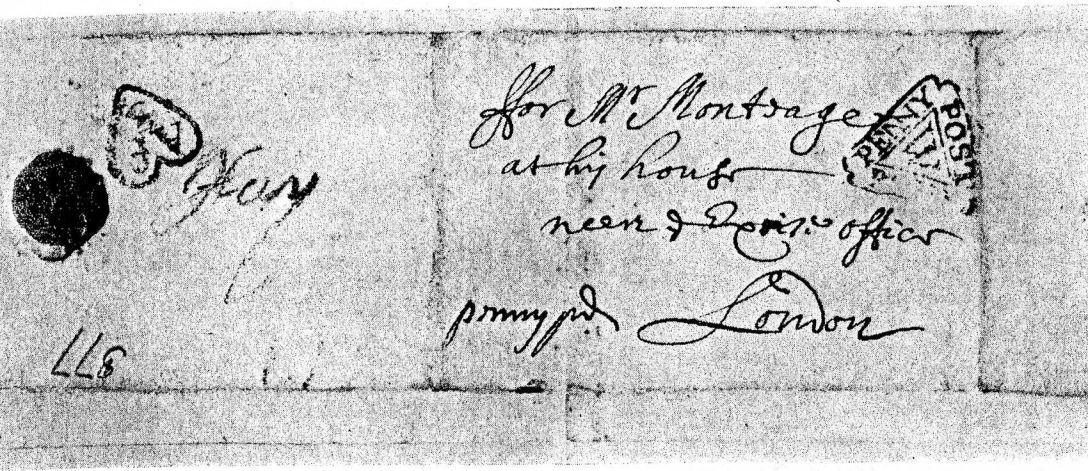 ffor Mr Montrage
at his house
neer ye Excise office
penny pd London
PENNY POST